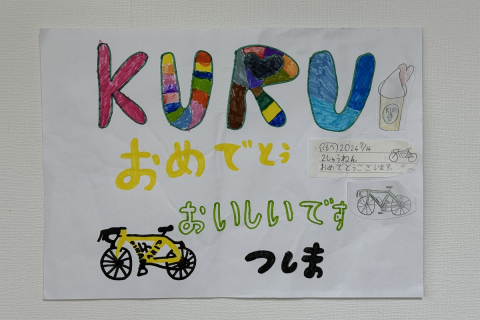 KURU
おめでとう
2しゅうねん
おめでとうございます。
おいしいです
つしま